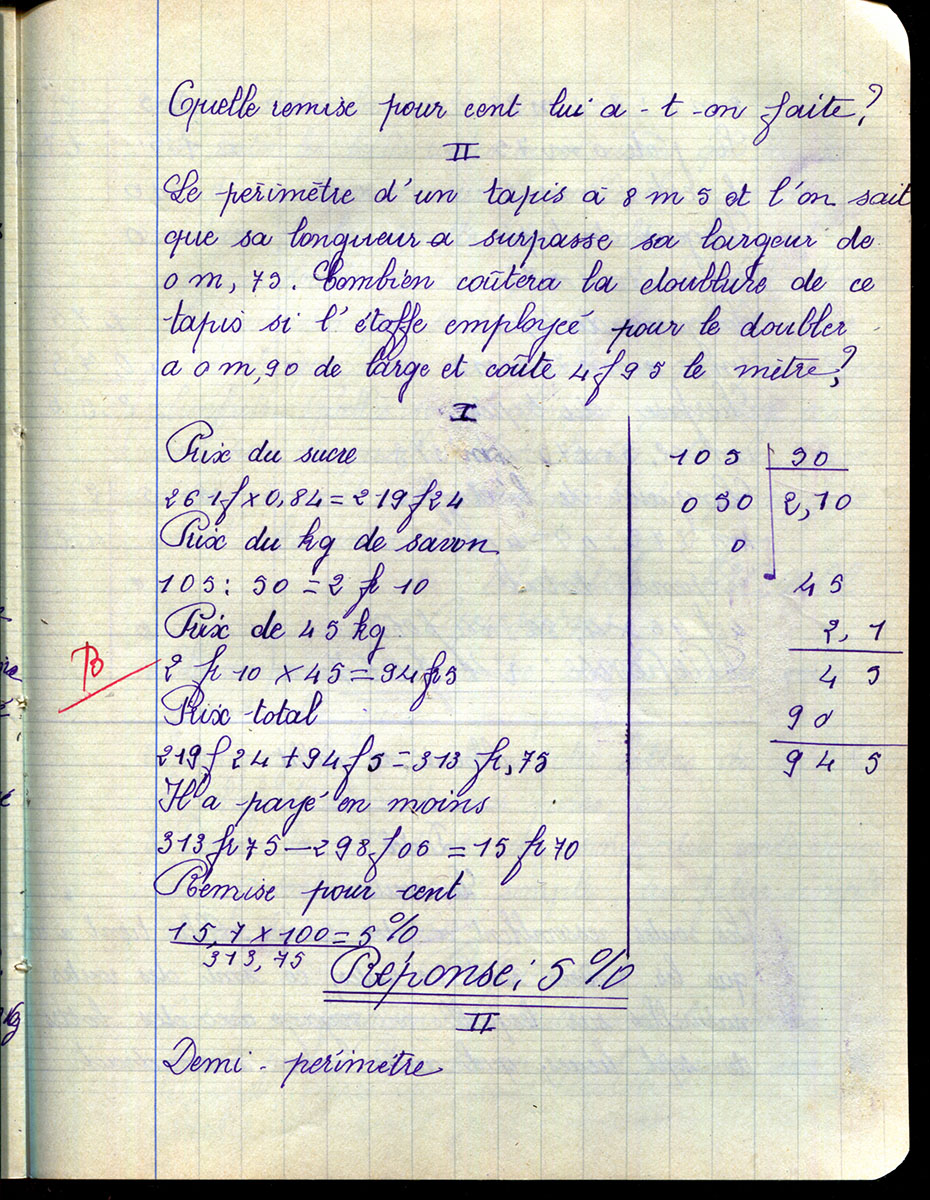 Quelle remise pour cent lui a-t-on faite?
II
Le périmètre d'un tapis à 8 m 5 et l'on sait
que sa longueur a surpasse sa largeur de
0 m, 75. Combien coûtera la doublure de ce
tapis si l'étoffe employeé pour le doubler
a 0 m,90 de large et coûte 4 f 95 le mètre?
I
Prix du sucre
261 f x 0,84 = 219 f 24
Prix du kg de savon
105 : 50 = 2 fr 10
Prix de 45 kg
2 fr 10 x 45 = 94 fr 5
Prix total
219 f 24 + 94 f 5 = 313 fr, 75
Il a payé en moins
313 fr 75 — 298 f 06 = 15 fr 70
Remise pour cent
15,7 x 100 = 5 %
313,75
Réponse: 5 %
II
Demi-périmètre
105 50
050 2,10
0
45
2,1
4 5
9 0
9 4 5
B